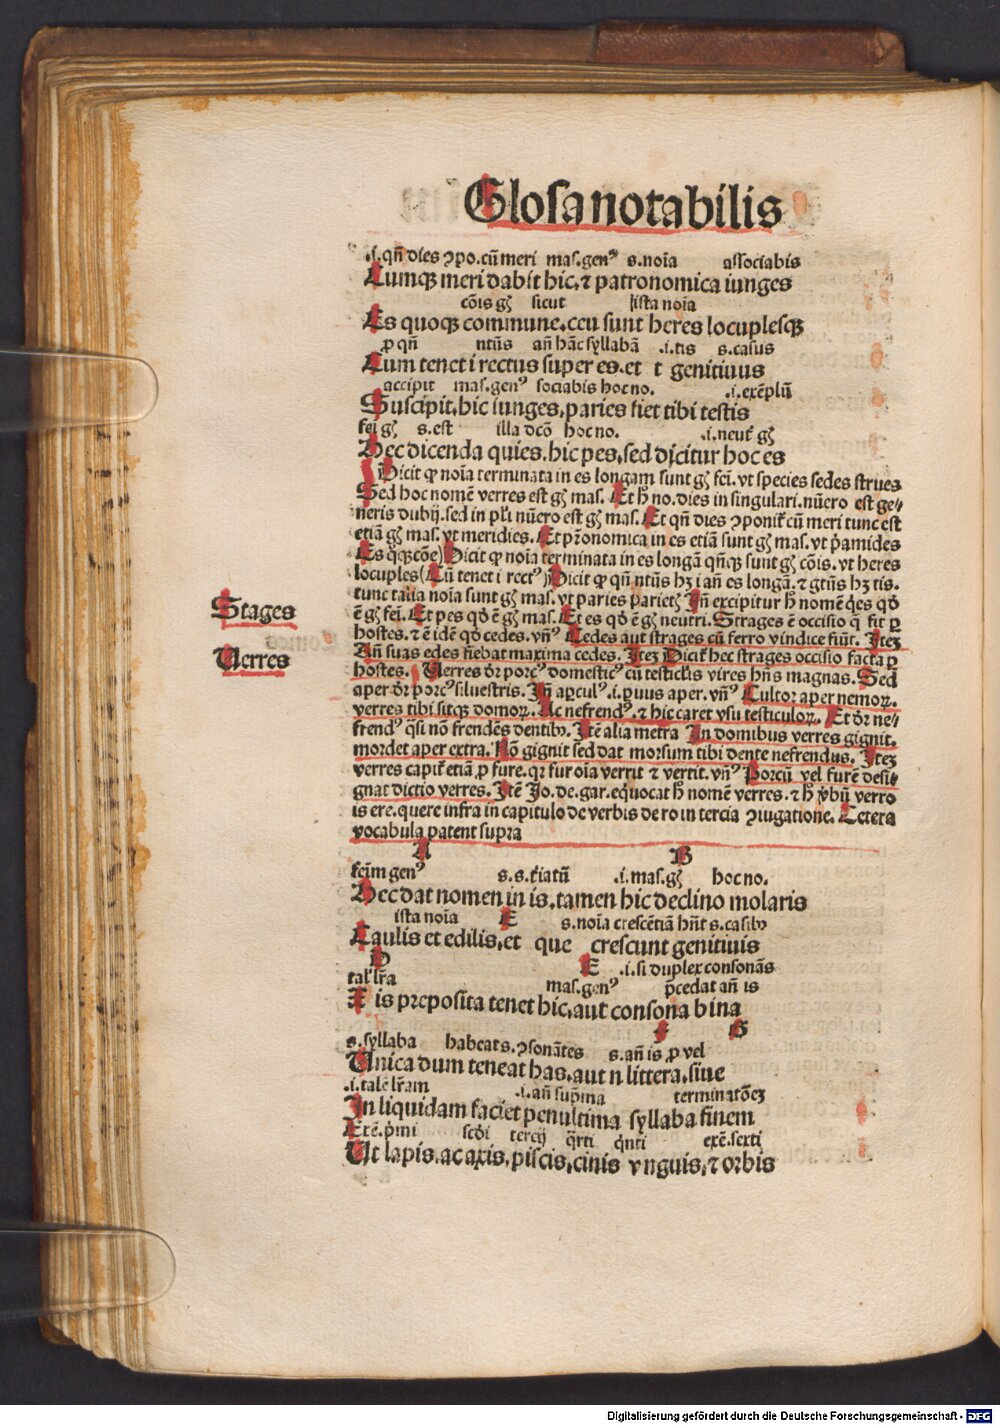 Glosa notabilis
.i.qñ dies ꝯpo.cũ meri mas.genꝰ s.noĩa associabis
Cumqꝫ meri dabit hic,⁊ patronomica iunges
cõis gñ sicut ista noĩa
Es quoqꝫ commune.ceu sunt heres locuplesqꝫ
ꝓ qñ ntũs añ hãc syllabã .i.tis s.casus
Cum tenet i rectus super es.et t genitiuus
accipit mas.genꝰ sociabis hoc no. .i.exẽplũ
Suscipit,hic iunges,paries fiet tibi testis
fei gñ s.est illa dcõ hoc no. .i.neut̃ gñ
Hec dicenda quies.hic pes,sed dicitur hoc es
Dicit ꝙ noĩa terminata in es longam sunt gñ fei.vt species sedes strues
Sed hoc nomẽ verres est gñ mas. Et h̃ no.dies in singulari.nũero est ge-
neris dubij.sed in pl̃i nũero est gñ mas. Et qñ dies ꝯponit̃ cũ meri tunc est
etiã gñ mas.vt meridies. Et pr̃onomica in es etiã sunt gñ mas.vt p̃amides
Es qꝫqꝫ cõe) Dicit ꝙ noĩa terminata in es longã qñqꝫ sunt gñ cõis.vt heres
locuples (Cũ tenet i rectꝰ) Dicit ꝙ qñ ntũs hꝫ i añ es longã.⁊ gtũs hꝫ tis.
tunc talia noĩa sunt gñ mas.vt paries parietꝭ Iñ excipitur h̃ nomẽ q̃es qđ
ẽ gñ fei. Et pes qđ ẽ gñ mas. Et es qđ ẽ gñ neutri. Strages ẽ occisio q̃ fit ꝑ
hostes.⁊ ẽ idẽ qđ cedes.vñꝰ Cedes aut strages cũ ferro vindice fiũt. Iteꝫ
Añ suas edes fiebat maxima cedes. Iteꝫ Dicit̃ hec strages occisio facta ꝑ
hostes. Verres dr̃ porcꝰ domesticꝰ cũ testiclis vires hñs magnas. Sed
aper dr̃ porcꝰ siluestris. Iñ apculꝰ.i.ꝑuus aper.vñꝰ Cultor aper nemoꝝ.
verres tibi sitqꝫ domoꝝ. Ac nefrendꝰ.⁊ hic caret vsu testiculoꝝ. Et dr̃ ne-
frendꝰ q̃si nõ frendẽs dentibꝰ. Itẽ alia metra In domibus verres gignit.
mordet aper extra. Nõ gignit sed dat morsum tibi dente nefrendus. Iteꝫ
verres capit̃ etiã ꝓ fure.qꝛ fur oĩa verrit ⁊ vertit.vñꝰ Porcũ vel furẽ desi-
gnat dictio verres. Itẽ Jo.de.gar.eq̃uocat h̃ nomẽ verres.⁊ h̃ v̾bũ verro
is ere.quere infra in capitulo de verbis de ro in tercia ꝯiugatione. Cetera
vocabula patent supra
Stages
Verres
A B
feĩm genꝰ s.s.t̃iatũ .i.mas.gñ hoc no.
Hec dat nomen in is,tamen hic declino molaris
ista noĩa C s.noĩa crescẽtiã hñt s.casibꝰ
Caulis et edilis,et que crescunt genitiuis
D E .i.si duplex consonãs
tal' lr̃a mas.genꝰ p̃cedat añ is
X is preposita tenet hic,aut consona bina
F G
s.syllaba habeat s.ꝯsonãtes s.añ is ꝓ vel
Vnica dum teneat has,aut n littera,siue
.i.talẽ lr̃am .i.añ sup̃ma terminatõeꝫ
In liquidam faciet penultima syllaba finem
Exẽ.p̃mi scđi tercij q̃rti q̃nti exẽ.sexti
Vt lapis.ac axis,piscis,cinis vnguis,⁊ orbis
Digitalisierung gefördert durch die Deutsche Forschungsgemeinschaft - DFG